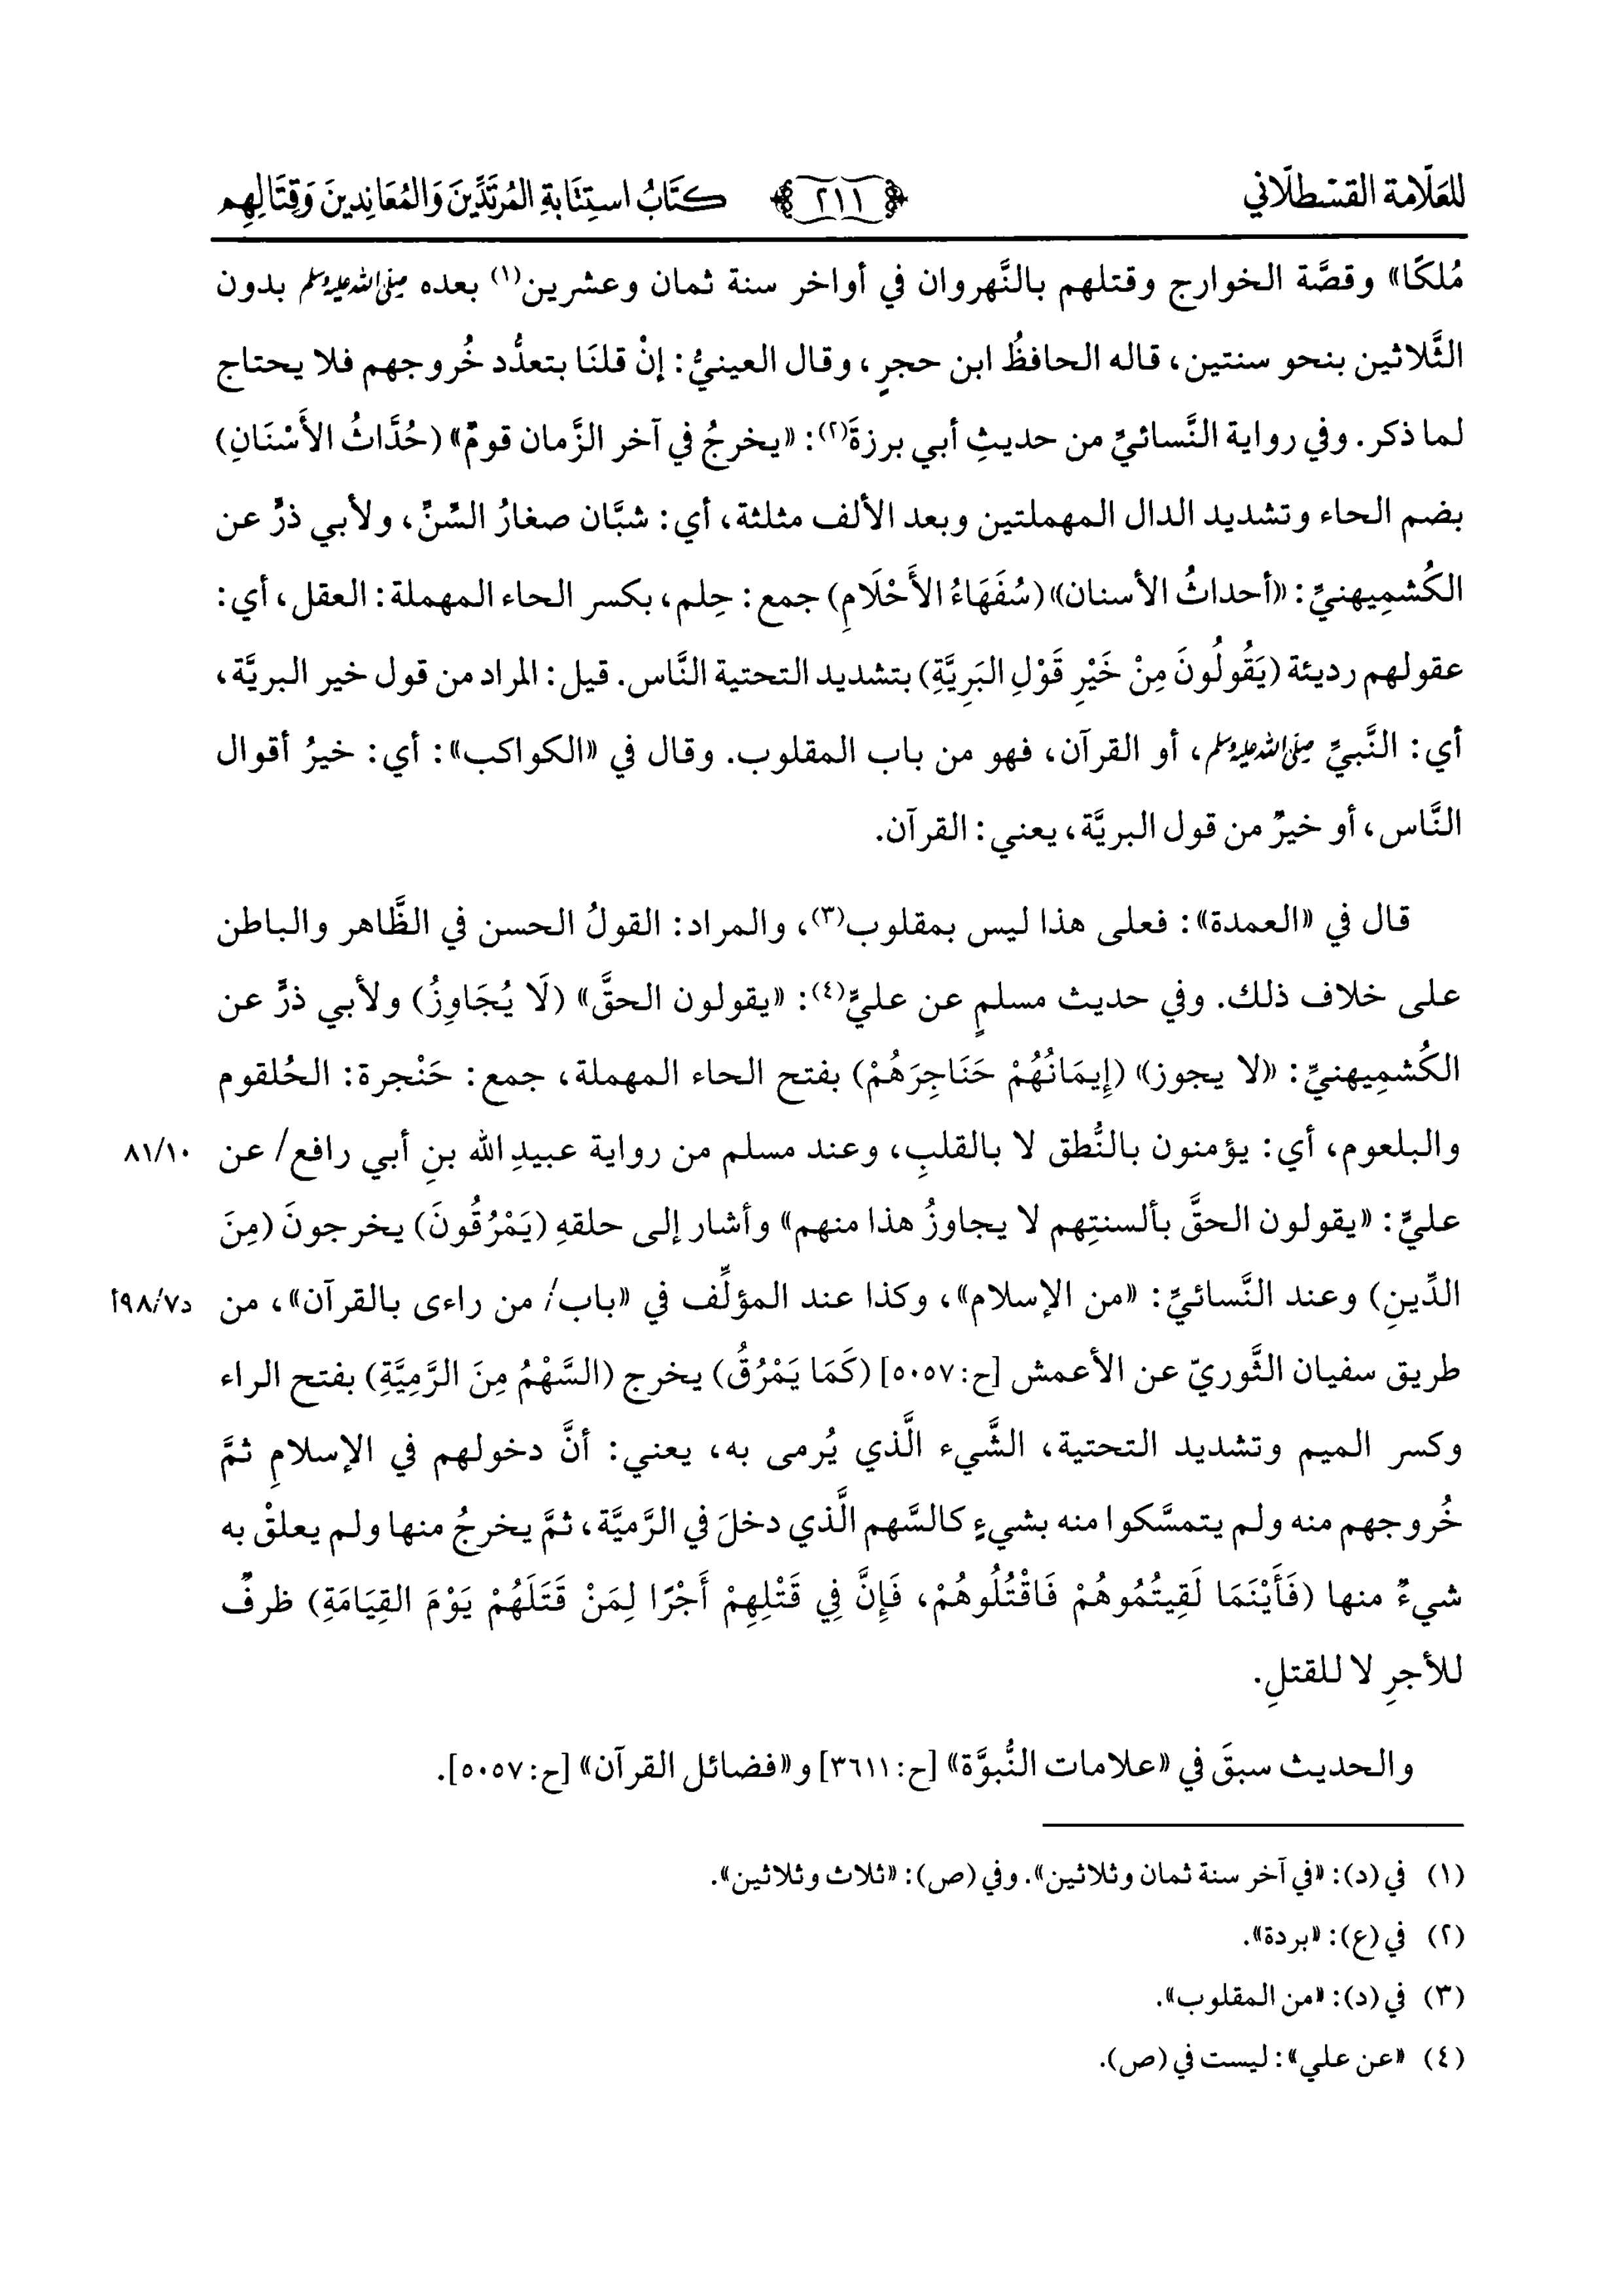 للعلامة القسطلاني ٢١١ كتاب استتابة المرتدين والمعاندين وقتالهم
مُلكًا» وقصَّة الخوارج وقتلهم بالنَّهروان في أواخر سنة ثمان وعشرين(١) بعده صلى الله عليه وسلم بدون
الثَّلاثين بنحو سنتين، قاله الحافظُ ابن حجرٍ، وقال العينيُّ: إنْ قلنَا بتعدُّد خُروجهم فلا يحتاج
لما ذكر. وفي رواية النَّسائيِّ من حديثِ أبي برزةَ(٢): «يخرجُ في آخر الزَّمان قومٌ» (حُدَّاثُ الأَسْنَانِ)
بضم الحاء وتشديد الدال المهملتين وبعد الألف مثلثة، أي: شبَّان صغارُ السِّنِّ، ولأبي ذرٍّ عن
الكُشمِيهنيِّ: «أحداثُ الأسنان» (سُفَهَاءُ الأَحْلَامِ) جمع: حِلم، بكسر الحاء المهملة: العقل، أي:
عقولهم رديئة (يَقُولُونَ مِنْ خَيْرِ قَوْلِ البَرِيَّةِ) بتشديد التحتية النَّاس. قيل: المراد من قول خير البريَّة،
أي: النَّبيِّ صلى الله عليه وسلم، أو القرآن، فهو من باب المقلوب. وقال في «الكواكب»: أي: خيرُ أقوال
النَّاس، أو خيرٌ من قول البريَّة، يعني: القرآن.
قال في «العمدة»: فعلى هذا ليس بمقلوب(٣)، والمراد: القولُ الحسن في الظَّاهر والباطن
على خلاف ذلك. وفي حديث مسلمٍ عن عليٍّ(٤): «يقولون الحقَّ» (لَا يُجَاوِزُ) ولأبي ذرٍّ عن
الكُشمِيهنيِّ: «لا يجوز» (إِيمَانُهُمْ حَنَاجِرَهُمْ) بفتح الحاء المهملة، جمع: حَنْجرة: الحُلقوم
والبلعوم، أي: يؤمنون بالنُّطق لا بالقلبِ، وعند مسلم من رواية عبيدِ الله بنِ أبي رافع/ عن ٨١/١٠
عليٍّ: «يقولون الحقَّ بألسنتِهم لا يجاوزُ هذا منهم» وأشار إلى حلقهِ (يَمْرُقُونَ) يخرجونَ (مِنَ
الدِّينِ) وعند النَّسائيِّ: «من الإسلام»، وكذا عند المؤلِّف في «باب/ من راءى بالقرآن»، من د٩٨/٧أ
طريق سفيان الثَّوريّ عن الأعمش [ح:٥٠٥٧] (كَمَا يَمْرُقُ) يخرج (السَّهْمُ مِنَ الرَّمِيَّةِ) بفتح الراء
وكسر الميم وتشديد التحتية، الشَّيء الَّذي يُرمى به، يعني: أنَّ دخولهم في الإسلامِ ثمَّ
خُروجهم منه ولم يتمسَّكوا منه بشيءٍ كالسَّهم الَّذي دخلَ في الرَّميَّة، ثمَّ يخرجُ منها ولم يعلقْ به
شيءٌ منها (فَأَيْنَمَا لَقِيتُمُوهُمْ فَاقْتُلُوهُمْ، فَإِنَّ فِي قَتْلِهِمْ أَجْرًا لِمَنْ قَتَلَهُمْ يَوْمَ القِيَامَةِ) ظرفٌ
للأجرِ لا للقتلِ.
والحديث سبقَ في «علامات النُّبوَّة» [ح:٣٦١١] و«فضائل القرآن» [ح:٥٠٥٧].
(١) في (د): «في آخر سنة ثمان وثلاثين». وفي (ص): «ثلاث وثلاثين».
(٢) في (ع): «بردة».
(٣) في (د): «من المقلوب».
(٤) «عن علي»: ليست في (ص).